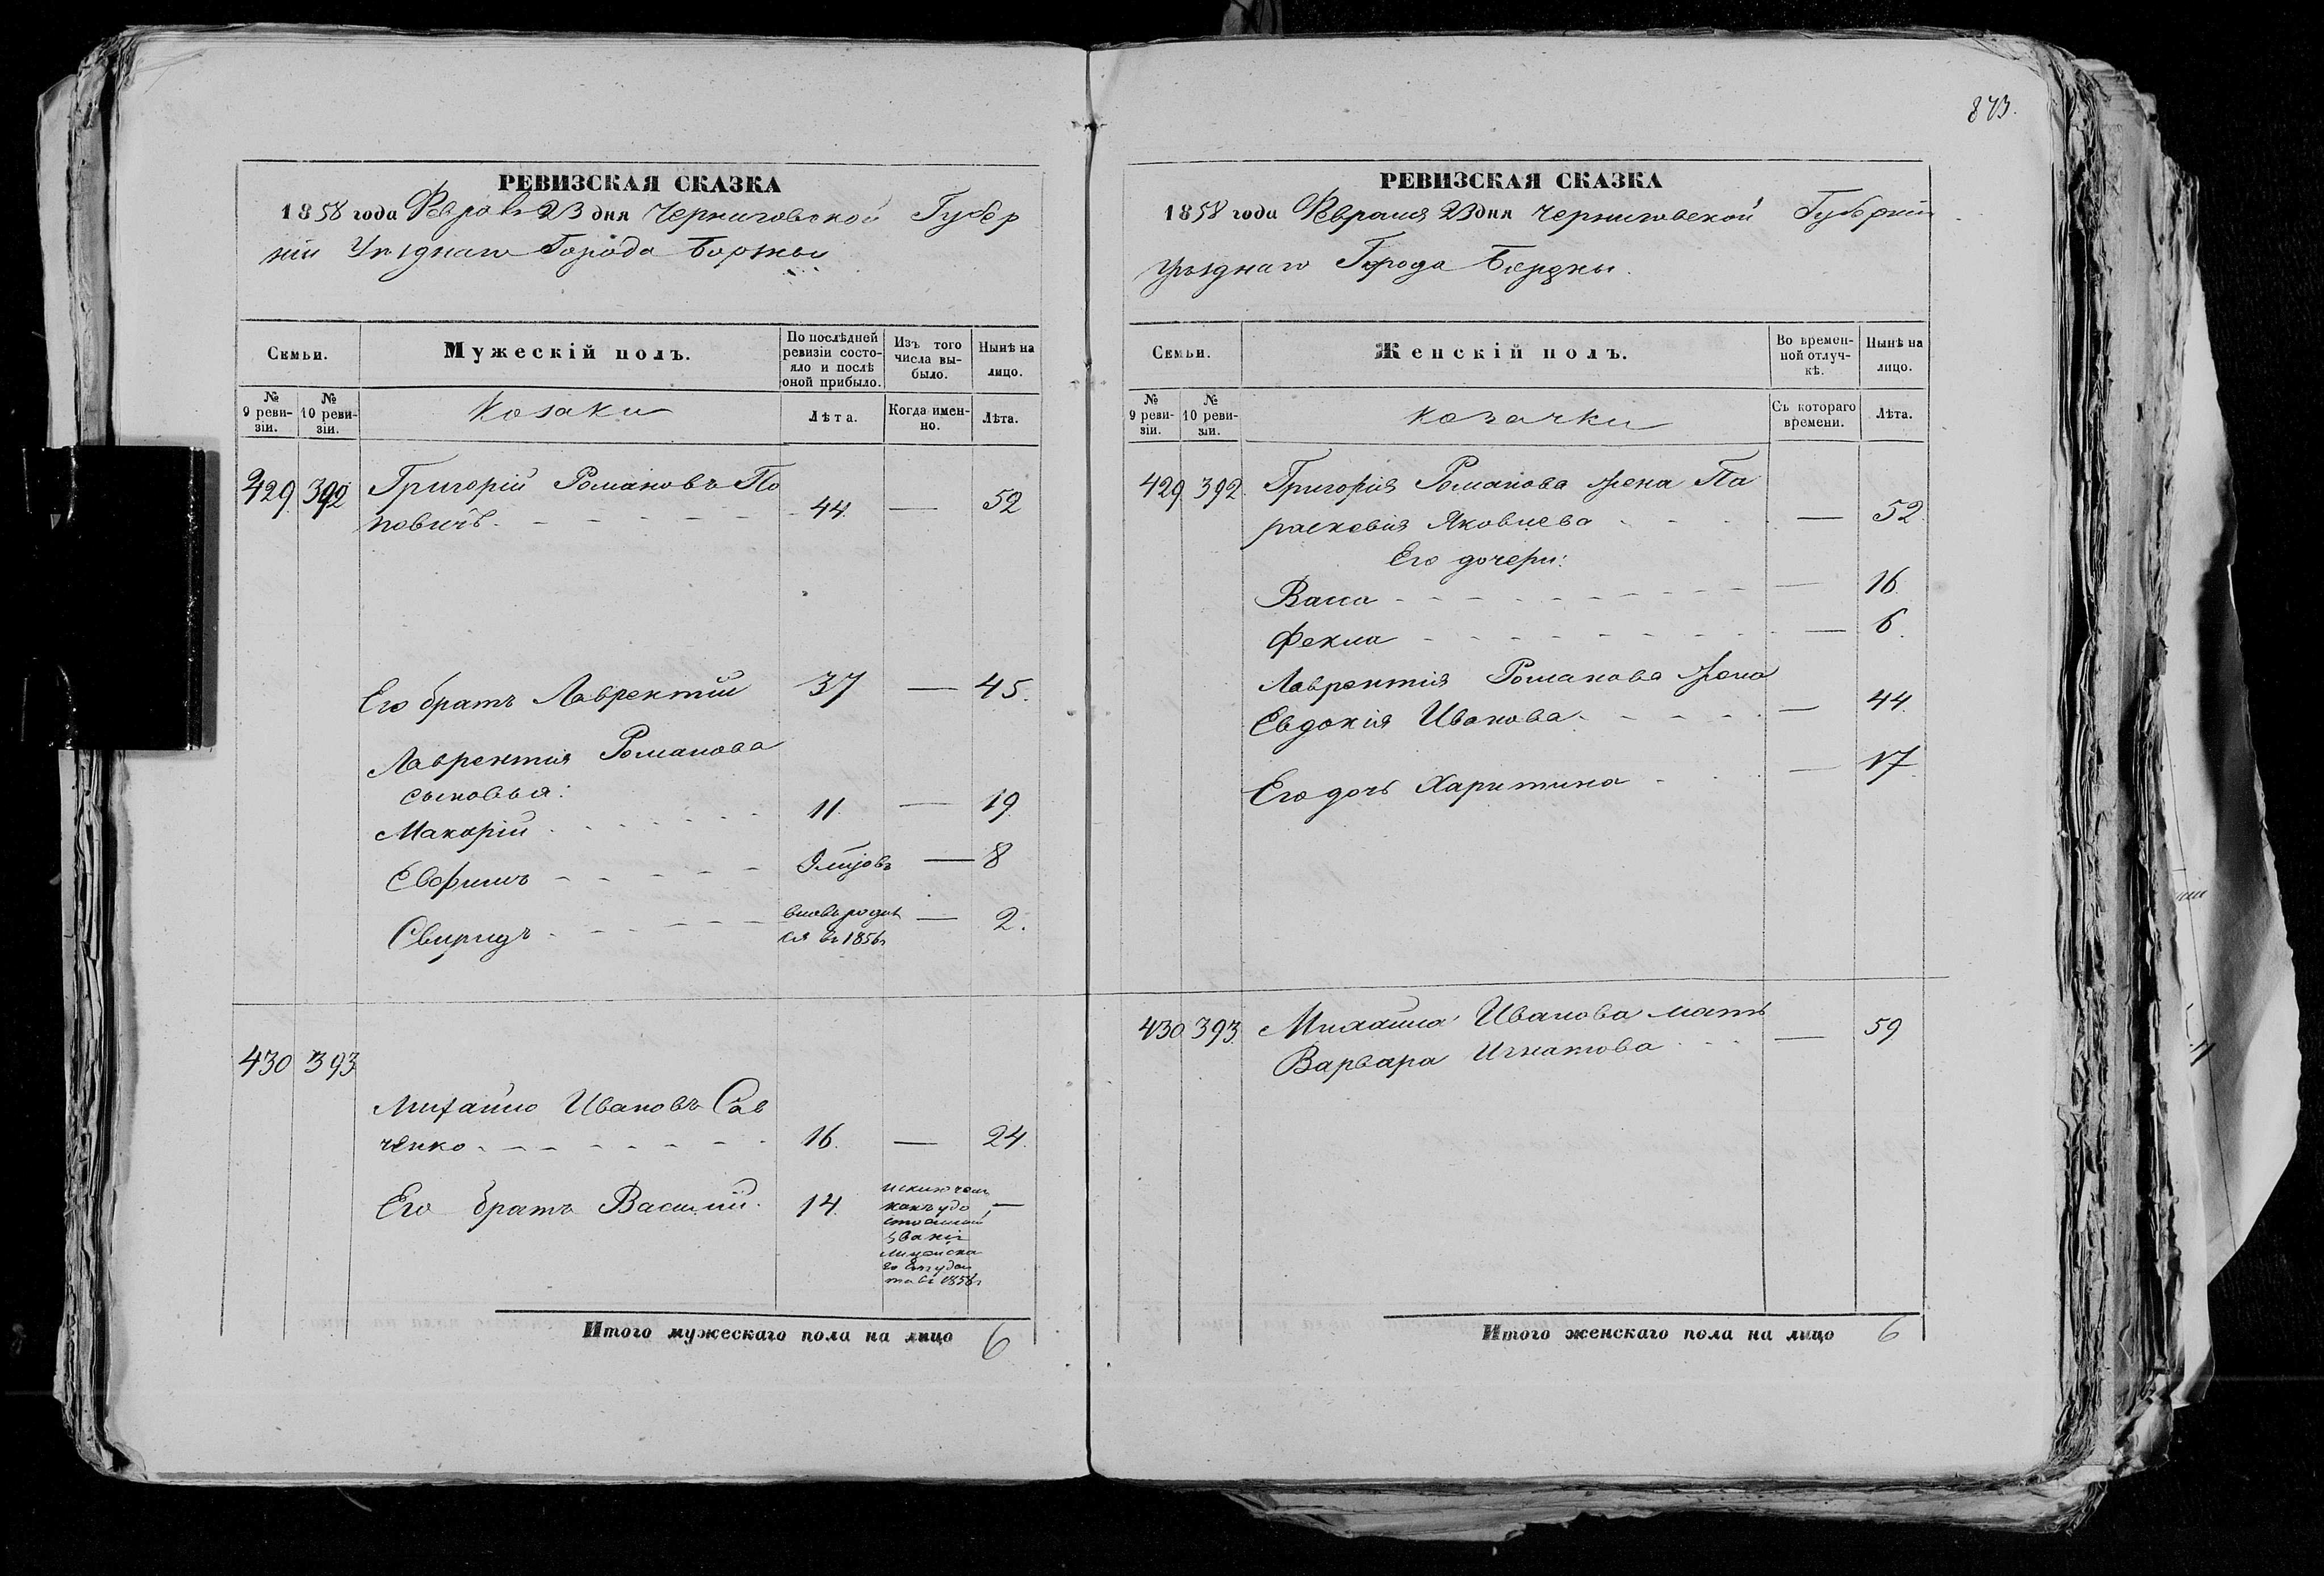 873.
РЕВИЗСКАЯ СКАЗКА
1858 года Февраля 23 дня Черниговской Губер
ніи Уѣзднаго Города Борзны
Семьи.
Мужескій полъ.
По послѣдней ревизіи состояло и послѣ оной прибыло.
Изъ того числа выбыло.
Нынѣ на лицо.
№ 9 ревизіи.
№ 10 ревизіи.
Козаки
Лѣта.
Когда именно.
Лѣта.
429 392 Григорій Романовъ По
повичъ 44 — 52
Его братъ Лаврентій 37 — 45.
Лаврентія Романова
сыновья:
Макарій 11 — 19
Евфимъ — 8
Свиридъ вновь родил
ся въ 1856г — 2.
430 393
Михайло Ивановъ Сав
ченко 16. — 24.
Его братъ Василій. 14.
исключен
какъ удо
стоеный
званія
—
въ 1858г
Итого мужескаго пола на лицо 6
РЕВИЗСКАЯ СКАЗКА
1858 года Февраля 23 дня Черниговской Губерніи
Уѣзднаго Города Борзны.
Семьи.
Женскій полъ.
Во временной отлучкѣ.
Нынѣ на лицо.
№ 9 ревизіи.
№ 10 ревизіи.
Козачки
Съ котораго времени.
Лѣта.
429 392. Григорія Романова жена Па
раскевія Яковлева — 52.
Его дочери:
Васса — 16.
Фекла — 6.
Лаврентія Романова жена
Евдокія Иванова — 44.
Его дочь Харитина — 17.
430 393. Михайла Иванова мать
Варвара Игнатова — 59
Итого женскаго пола на лицо 6